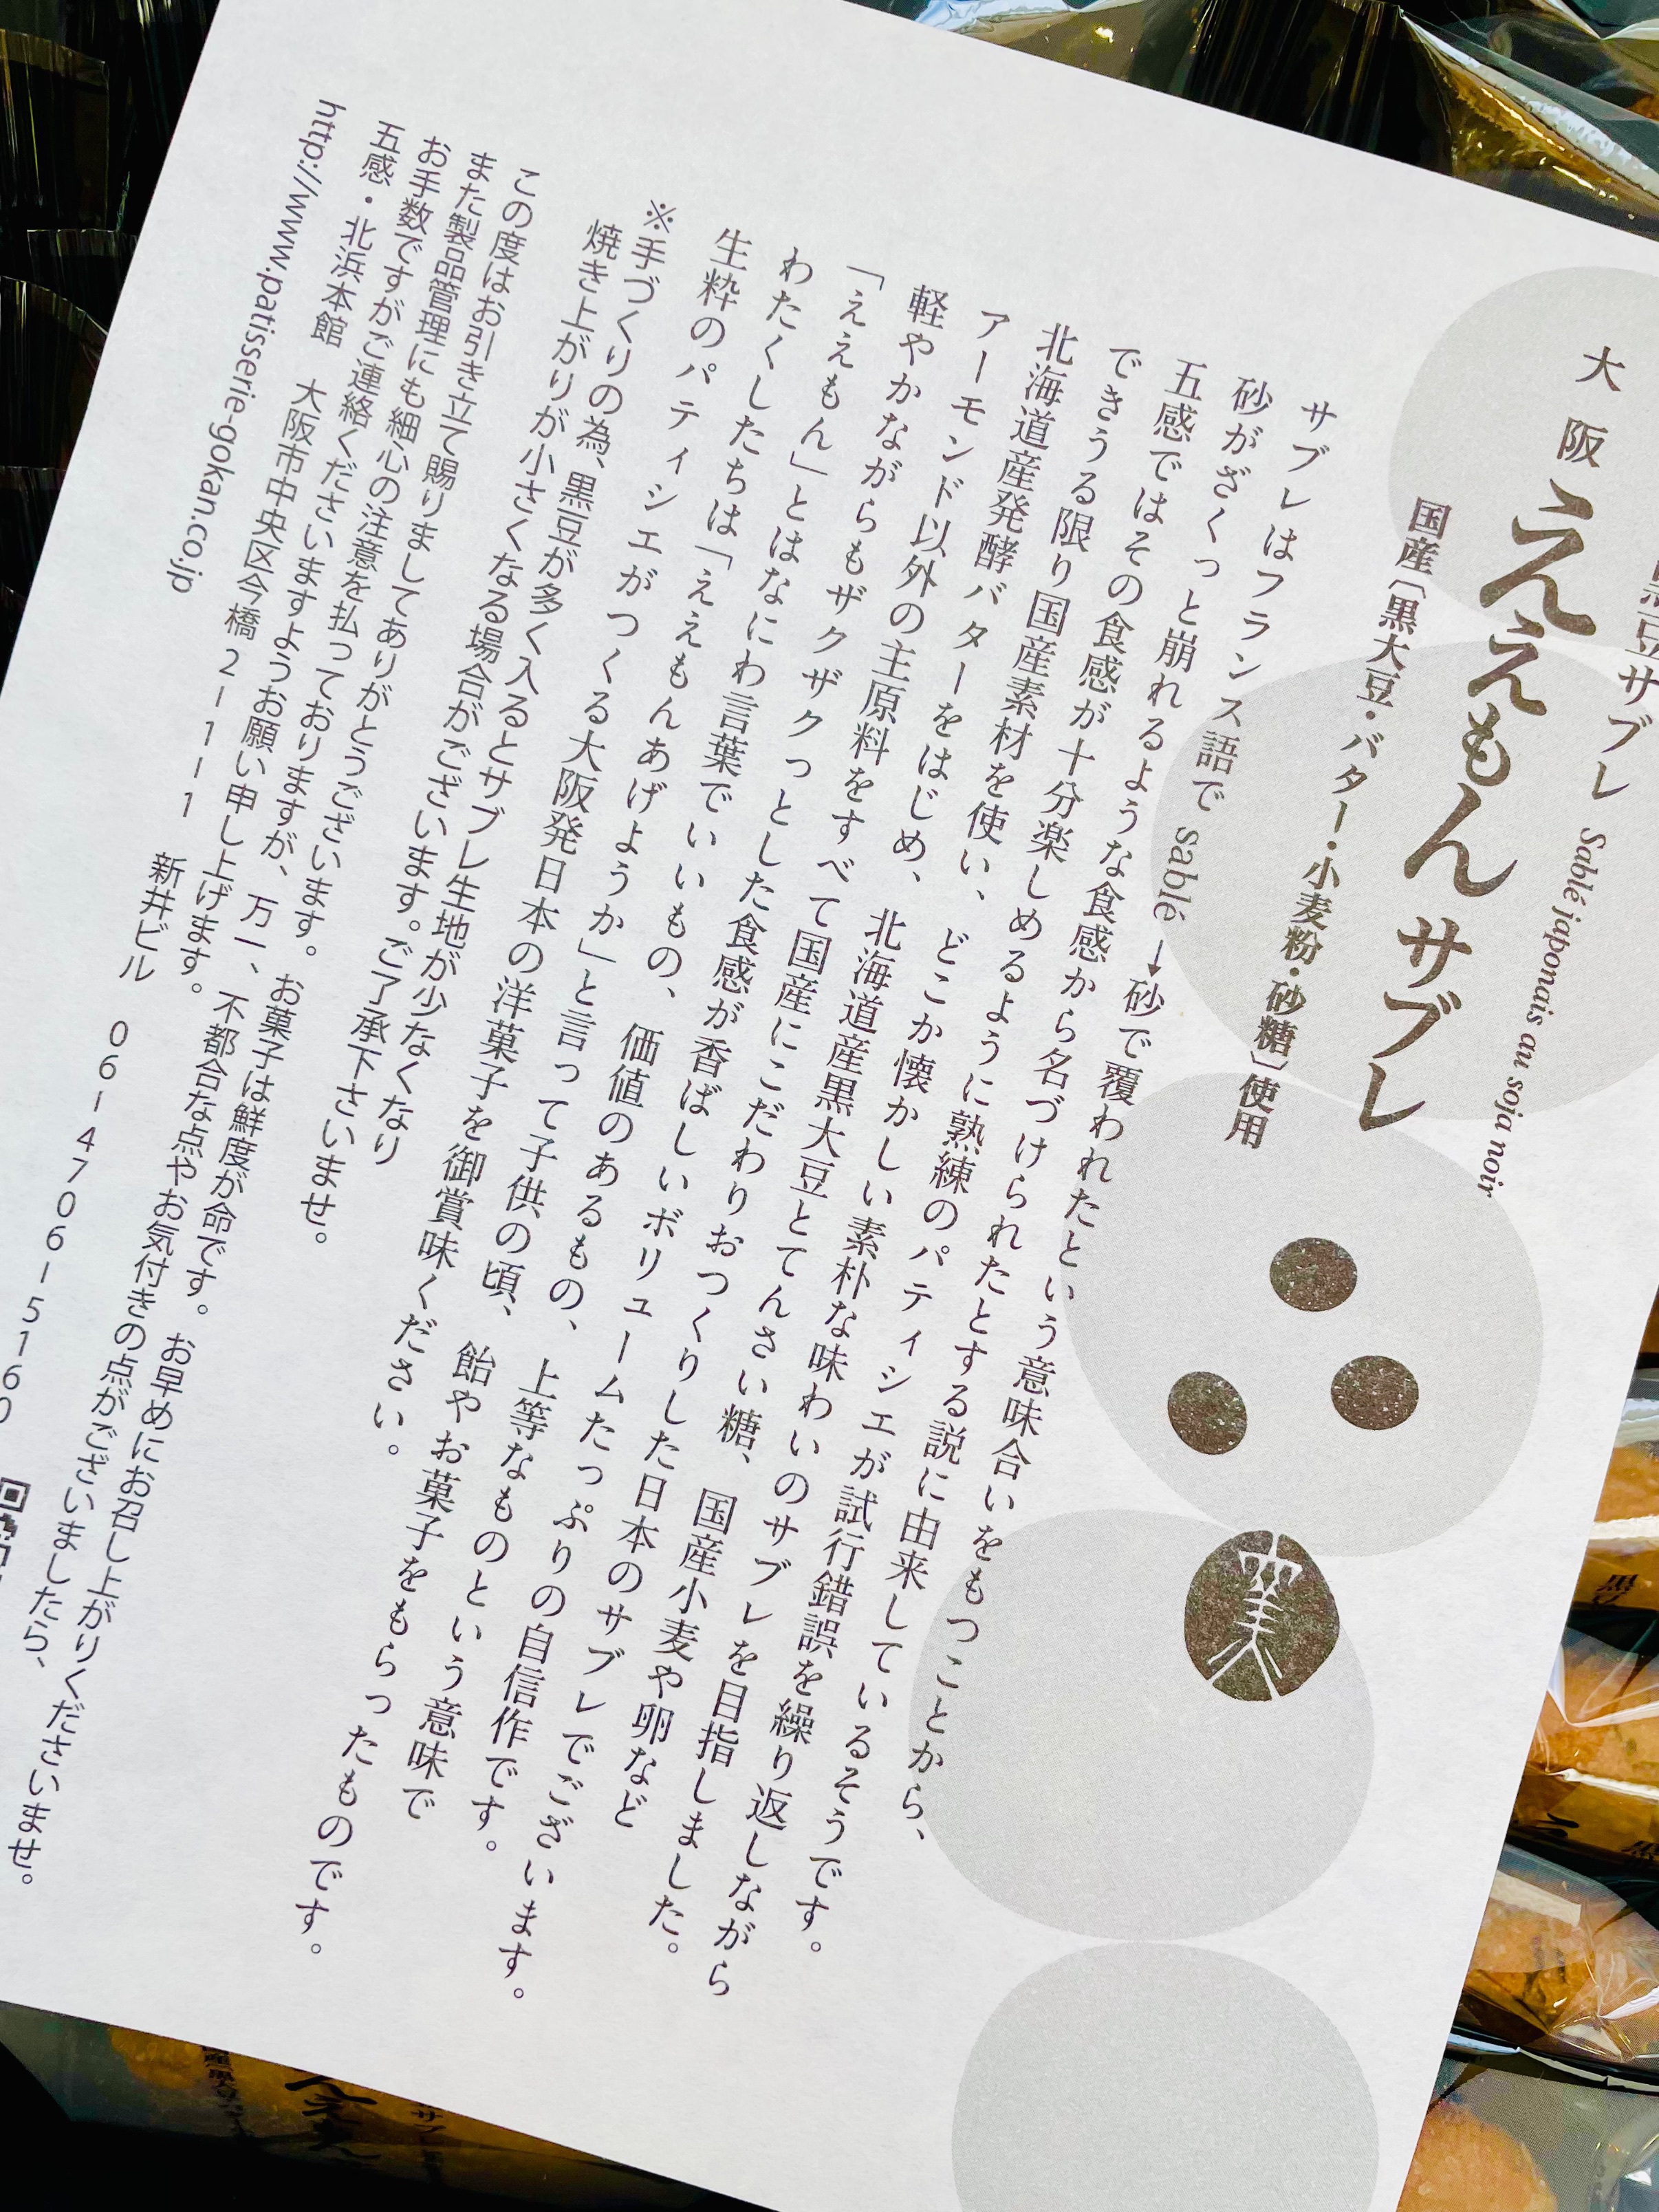 黒豆サブレ Sablé japonais au soja noir
大阪 ええもんサブレ
国産〔黒大豆・バター・小麦粉・砂糖〕使用
サブレはフランス語で sablé →砂で覆われたという意味合いをもつことから、
砂がざくっと崩れるような食感から名づけられたとする説に由来しているそうです。
五感ではその食感が十分楽しめるように熟練のパティシエが試行錯誤を繰り返しながら
できうる限り国産素材を使い、どこか懐かしい素朴な味わいのサブレを目指しました。
北海道産発酵バターをはじめ、北海道産黒大豆とてんさい糖、国産小麦や卵など
アーモンド以外の主原料をすべて国産にこだわりおつくりした日本のサブレでございます。
軽やかながらもザクザクっとした食感が香ばしいボリュームたっぷりの自信作です。
「ええもん」とはなにわ言葉でいいもの、価値のあるもの、上等なものという意味で
わたくしたちは「ええもんあげようか」と言って子供の頃、飴やお菓子をもらったものです。
生粋のパティシエがつくる大阪発日本の洋菓子を御賞味ください。
※手づくりの為、黒豆が多く入るとサブレ生地が少なくなり
焼き上がりが小さくなる場合がございます。ご了承下さいませ。
この度はお引き立て賜りましてありがとうございます。お菓子は鮮度が命です。お早めにお召し上がりくださいませ。
また製品管理にも細心の注意を払っておりますが、万一、不都合な点やお気付きの点がございましたら、
お手数ですがご連絡くださいますようお願い申し上げます。
五感・北浜本館 大阪市中央区今橋2-1-1 新井ビル 06-4706-5160
http://www.patisserie-gokan.co.jp